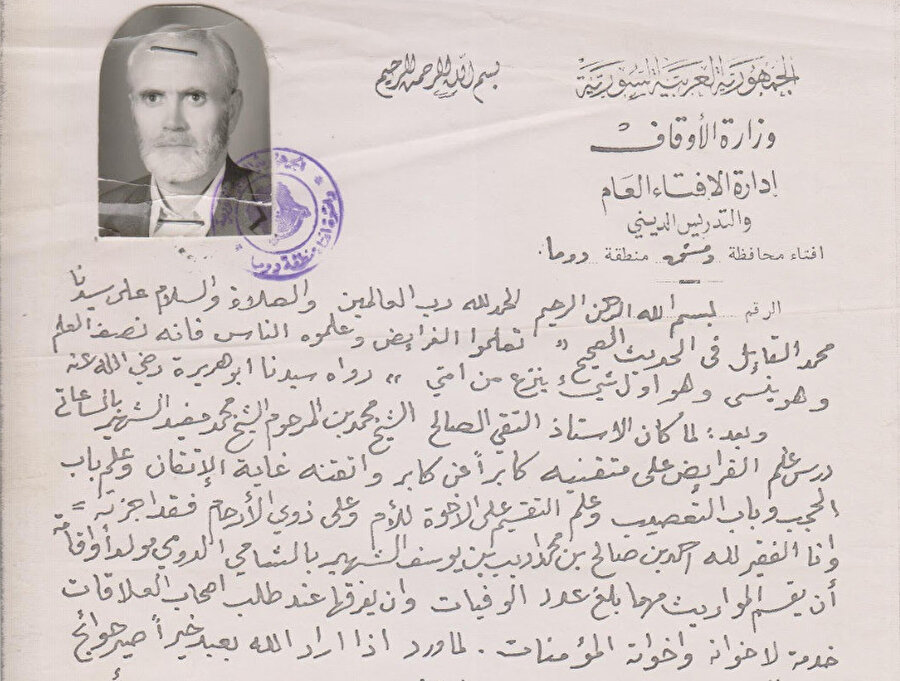 بسم الله الرحمن الرحيم
الجمهورية العربية السورية
وزارة الأوقاف
إدارة الافتاء العام
والتدريس الديني
افتاء محافظة دمشق منطقة دوما
الرقم بسم الله الرحمن الرحيم الحمد لله رب العالمين والصلاة والسلام على سيدنا
محمد القائل في الحديث الصحيح " تعلموا الفرايض وعلموه الناس فانه نصف العلم
وهو ينسى وهو اول شيء ينزع من امتي " رواه سيدنا ابو هريرة رضي الله عنه
وبعد: لما كان الاستاذ التقي الصالح الشيخ محمد بن المرحوم الشيخ محمد مفيد الشهير بالساعاتي
درس علم الفرايض على متقنيه كابراً عن كابر واتقنه غاية الإتقان وعلم باب
الحجب وباب التعصيب وعلم التقسيم على الاخوة للأم وعلى ذوي الأرحام فقد اجزته =
وانا الفقير لله احمد بن صالح بن محمد اديب بن يوسف الشهير بالشامي الدومي مولداً
أن يقسم المواريث مهما بلغ عدد الوفيات وان يفرقها عند طلب اصحاب العلاقات
خدمة لاخوانه واخواته المؤمنات . لما ورد اذا اراد الله بعبد خيراً صير حوائج
منطقة دوما